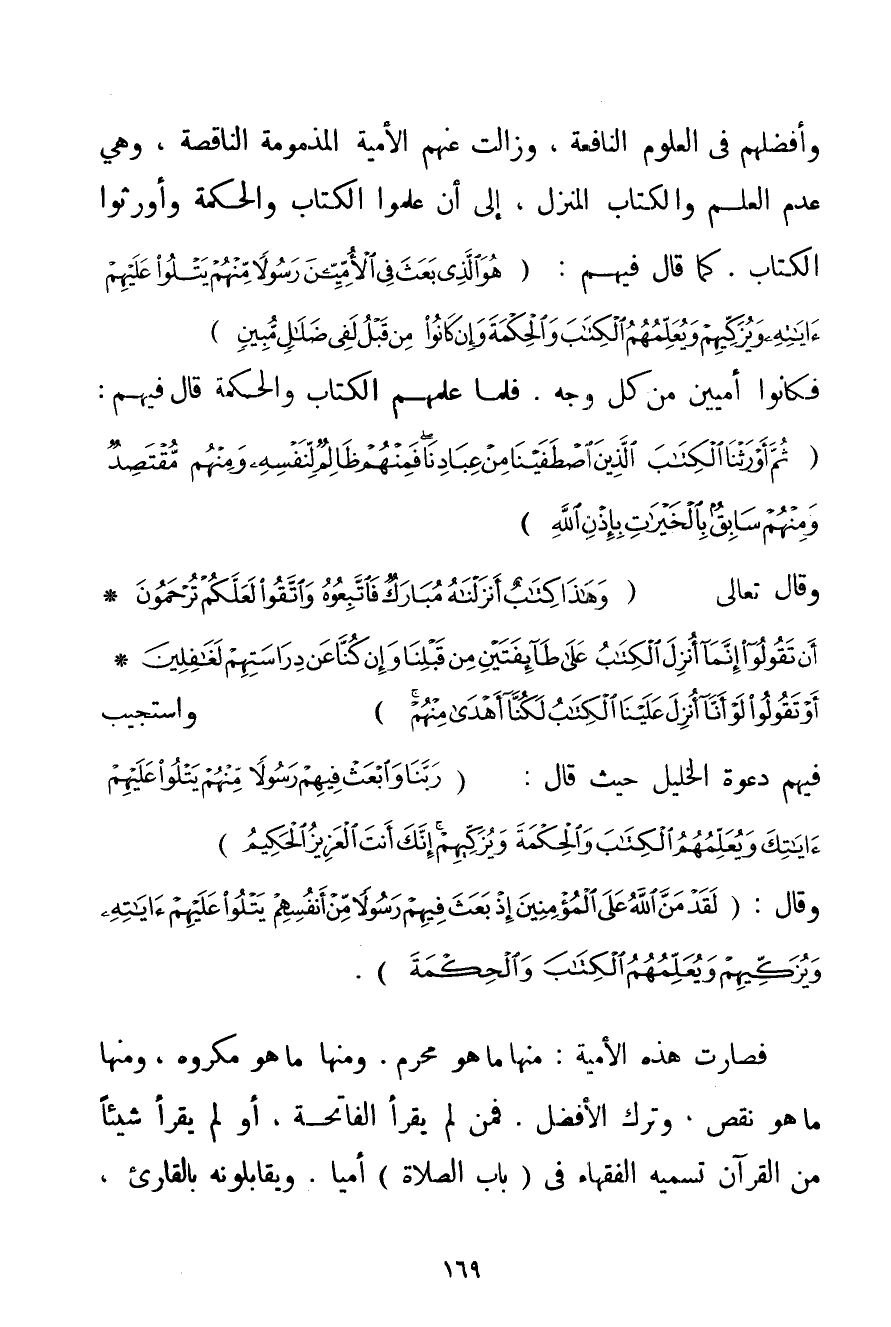 وأفضلهم فى العلوم النافعة ، وزالت عنهم الأمية المذمومة الناقصة ، وهي
عدم العلم والكتاب المنزل ، إلى أن علموا الكتاب والحكمة وأورثوا
الكتاب . كما قال فيهم : ( هُوَ ٱلَّذِى بَعَثَ فِى ٱلْأُمِّيِّـۧنَ رَسُولًا مِّنْهُمْ يَتْلُوا۟ عَلَيْهِمْ
ءَايَـٰتِهِۦ وَيُزَكِّيهِمْ وَيُعَلِّمُهُمُ ٱلْكِتَـٰبَ وَٱلْحِكْمَةَ وَإِن كَانُوا۟ مِن قَبْلُ لَفِى ضَلَـٰلٍ مُّبِينٍ )
فكانوا أميين من كل وجه . فلما علمهم الكتاب والحكمة قال فيهم :
( ثُمَّ أَوْرَثْنَا ٱلْكِتَـٰبَ ٱلَّذِينَ ٱصْطَفَيْنَا مِنْ عِبَادِنَا ۖ فَمِنْهُمْ ظَالِمٌ لِّنَفْسِهِۦ وَمِنْهُم مُّقْتَصِدٌ
وَمِنْهُمْ سَابِقٌۢ بِٱلْخَيْرَٰتِ بِإِذْنِ ٱللَّهِ )
وقال تعالى ( وَهَـٰذَا كِتَـٰبٌ أَنزَلْنَـٰهُ مُبَارَكٌ فَٱتَّبِعُوهُ وَٱتَّقُوا۟ لَعَلَّكُمْ تُرْحَمُونَ *
أَن تَقُولُوٓا۟ إِنَّمَآ أُنزِلَ ٱلْكِتَـٰبُ عَلَىٰ طَآئِفَتَيْنِ مِن قَبْلِنَا وَإِن كُنَّا عَن دِرَاسَتِهِمْ لَغَـٰفِلِينَ *
أَوْ تَقُولُوا۟ لَوْ أَنَّآ أُنزِلَ عَلَيْنَا ٱلْكِتَـٰبُ لَكُنَّآ أَهْدَىٰ مِنْهُمْ ۚ ) واستجيب
فيهم دعوة الخليل حيث قال : ( رَبَّنَا وَٱبْعَثْ فِيهِمْ رَسُولًا مِّنْهُمْ يَتْلُوا۟ عَلَيْهِمْ
ءَايَـٰتِكَ وَيُعَلِّمُهُمُ ٱلْكِتَـٰبَ وَٱلْحِكْمَةَ وَيُزَكِّيهِمْ ۚ إِنَّكَ أَنتَ ٱلْعَزِيزُ ٱلْحَكِيمُ )
وقال : ( لَقَدْ مَنَّ ٱللَّهُ عَلَى ٱلْمُؤْمِنِينَ إِذْ بَعَثَ فِيهِمْ رَسُولًا مِّنْ أَنفُسِهِمْ يَتْلُوا۟ عَلَيْهِمْ ءَايَـٰتِهِۦ
وَيُزَكِّيهِمْ وَيُعَلِّمُهُمُ ٱلْكِتَـٰبَ وَٱلْحِكْمَةَ ) .
فصارت هذه الأمية : منها ما هو محرم . ومنها ما هو مكروه ، ومنها
ما هو نقص ٠ وترك الأفضل . فمن لم يقرأ الفاتحة ، أو لم يقرأ شيئاً
من القرآن تسميه الفقهاء فى ( باب الصلاة ) أميا . ويقابلونه بالقارئ ،
١٦٩